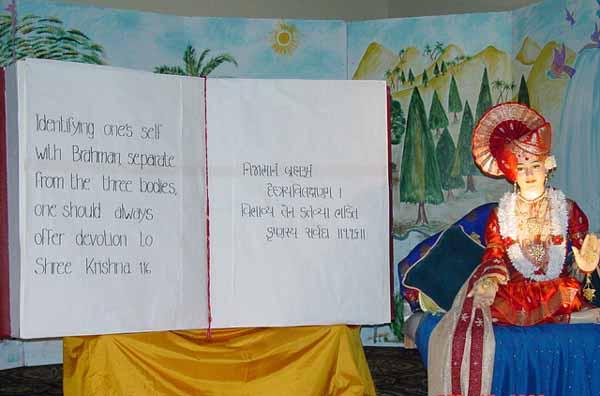 Identifying one's self
with Brahman, separate
from the three bodies,
one should always
offer devotion to
Shree Krishna 116
નિજાત્માનં બ્રહ્મરૂપં
દેહત્રયવિલક્ષણમ્ ।
વિભાવ્ય તેન કર્તવ્યા ભક્તિ
કૃષ્ણસ્ય સર્વદા ॥૧૧૬॥